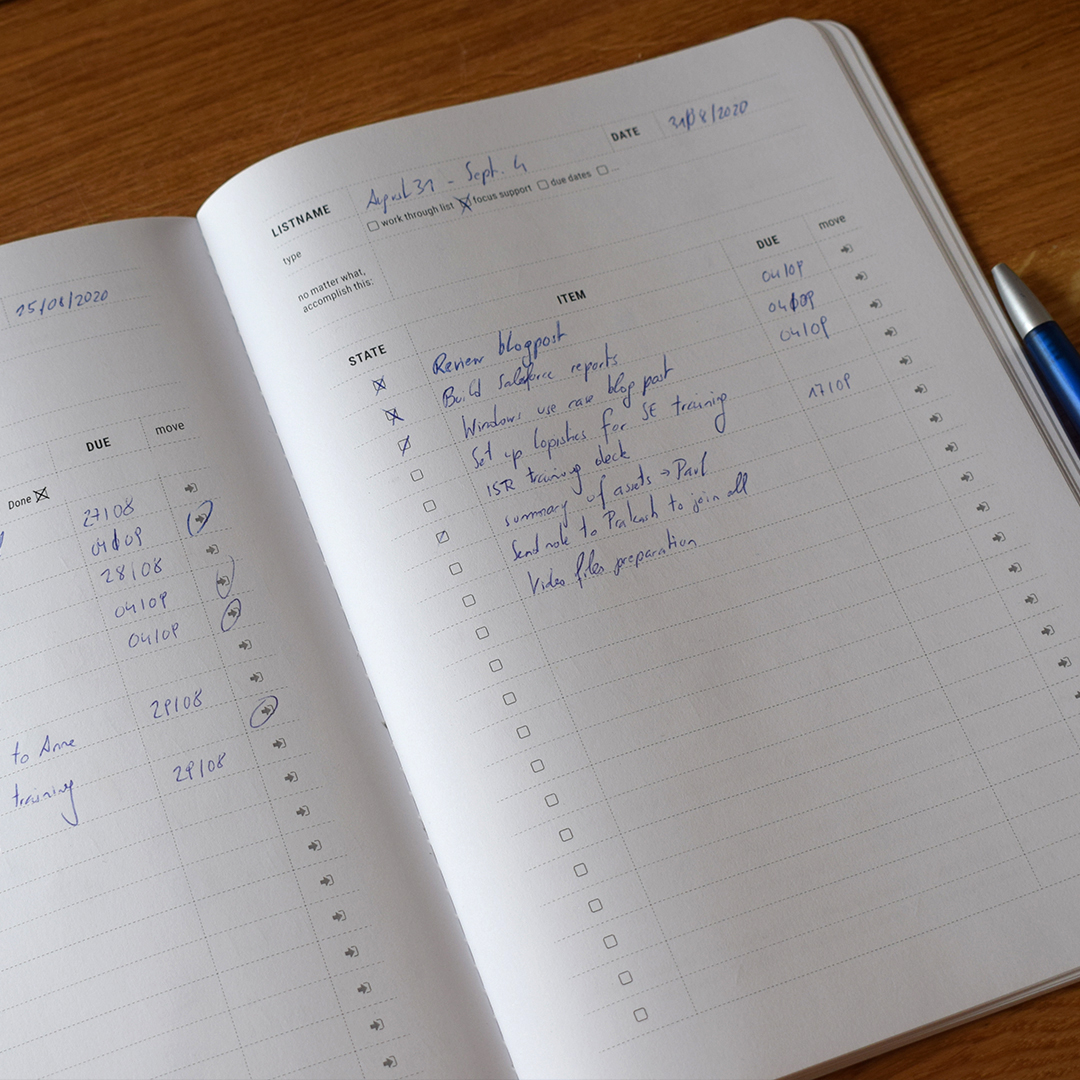 25/08/2020
DUE
move
Done
27/08
04/09
28/08
04/09
04/09
29/08
to Anne
training
29/08
LISTNAME
August 31 - Sept. 4
DATE
31/08/2020
type
work through list
focus support
due dates
...
no matter what,
accomplish this:
STATE
ITEM
DUE
move
Review blogpost
04/09
Build Salesforce reports
04/09
Windows use case blog post
04/09
Set up logistics for SE training
ISR training deck
17/09
summary of assets → Paul
Send note to Prakash to join all
Video files preparation